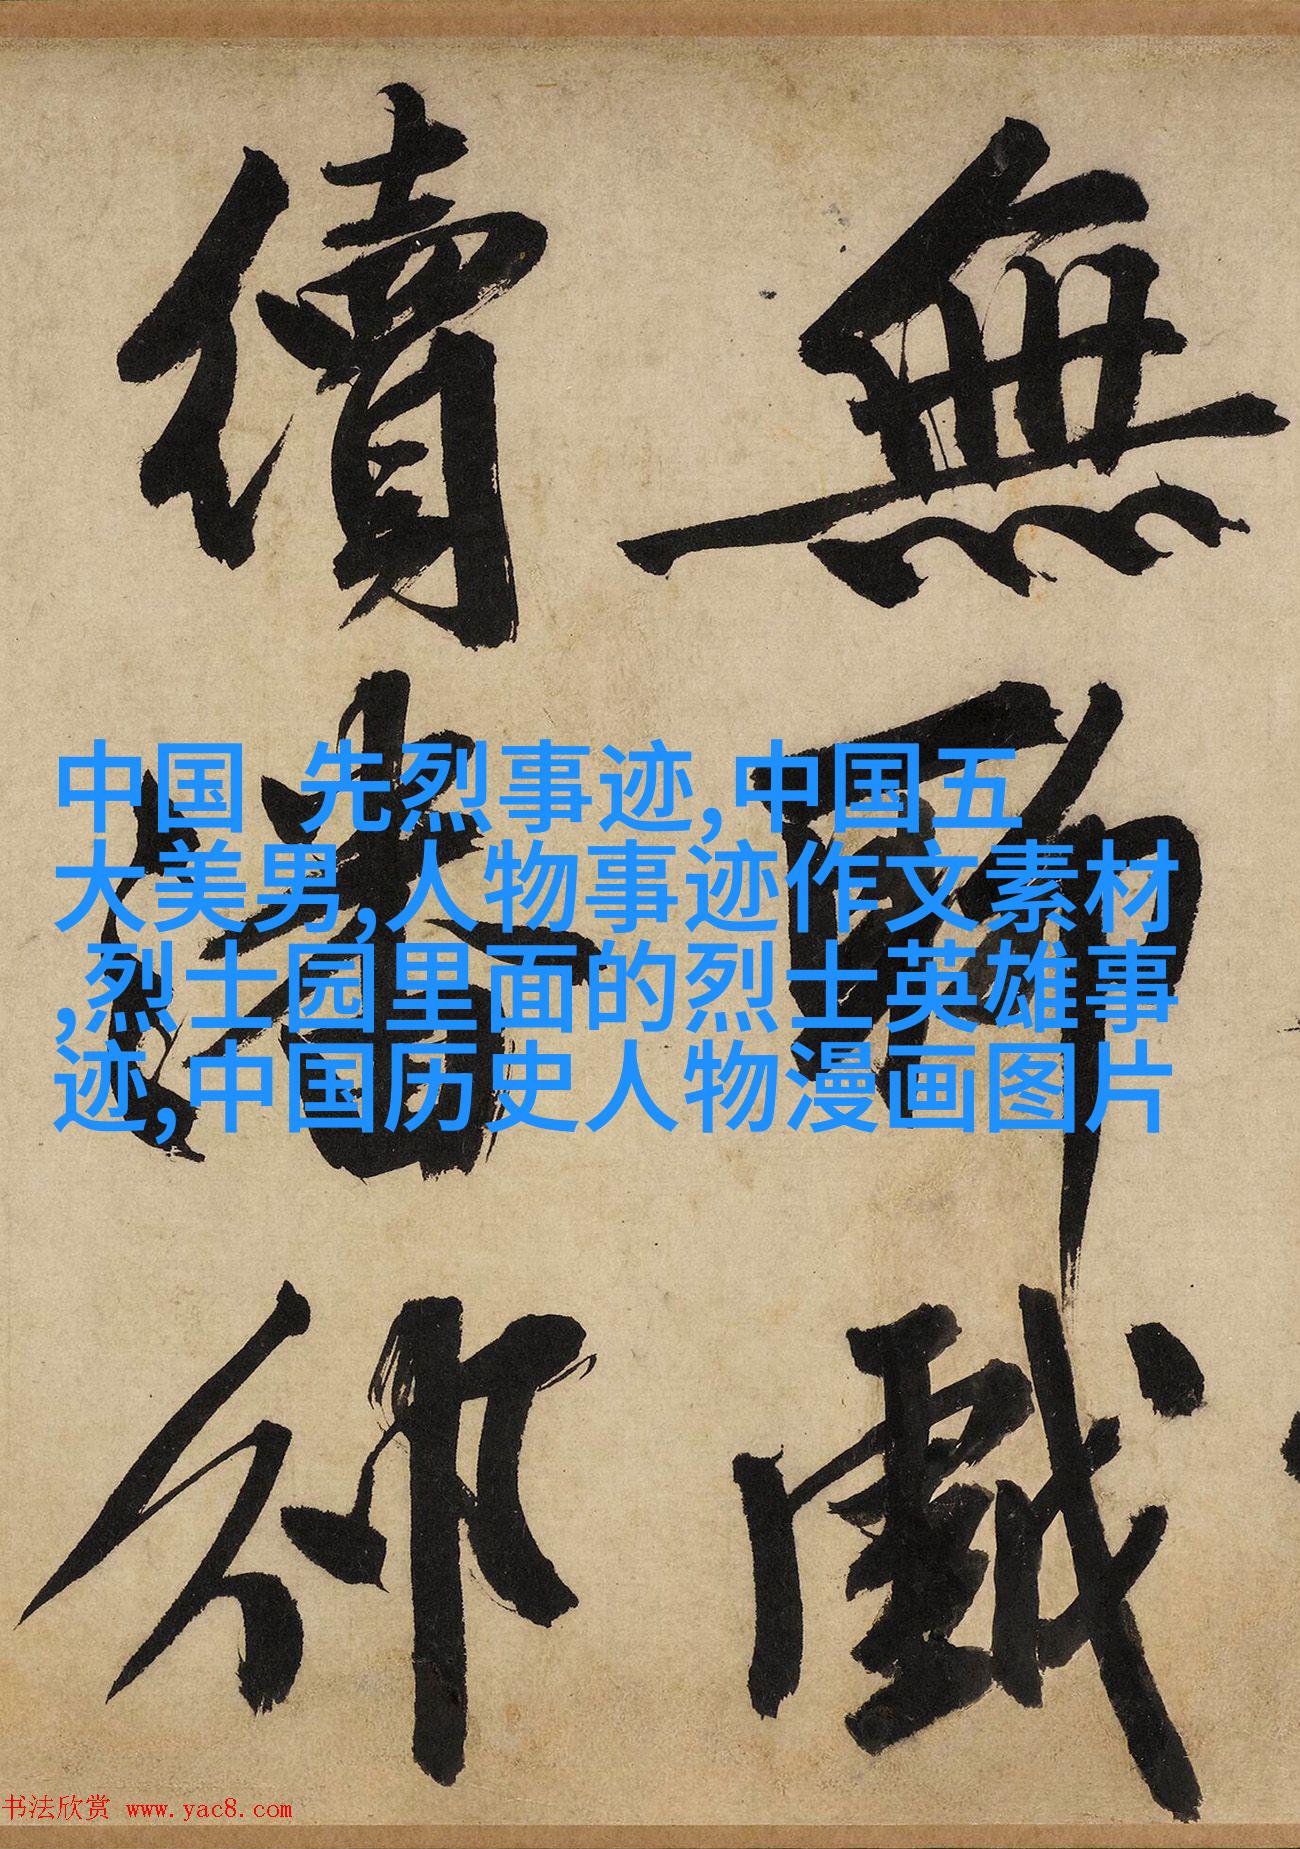 無聊戲
續潘邠
中国 先烈事迹,中国五
大美男,人物事迹作文素材
,烈士园里面的烈士英雄事
迹,中国历史人物漫画图片
书法欣赏 www.yac8.com